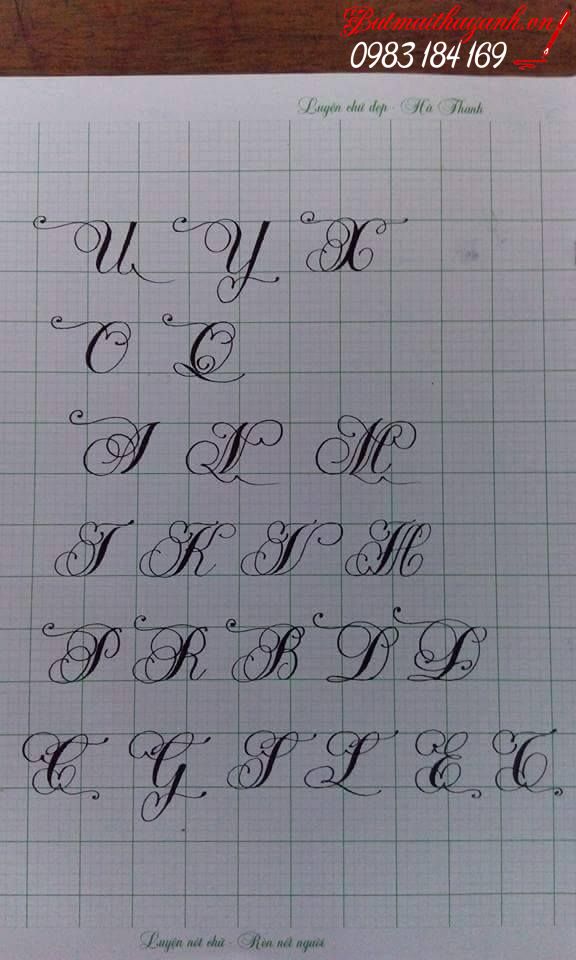 Butmaithuyanh.vn
0983 184 169
Luyện chữ đẹp - Hà Thanh
U Y X
O Q
A N M
I K V H
P R B D D
C G S L E T
Luyện nét chữ - Rèn nết người